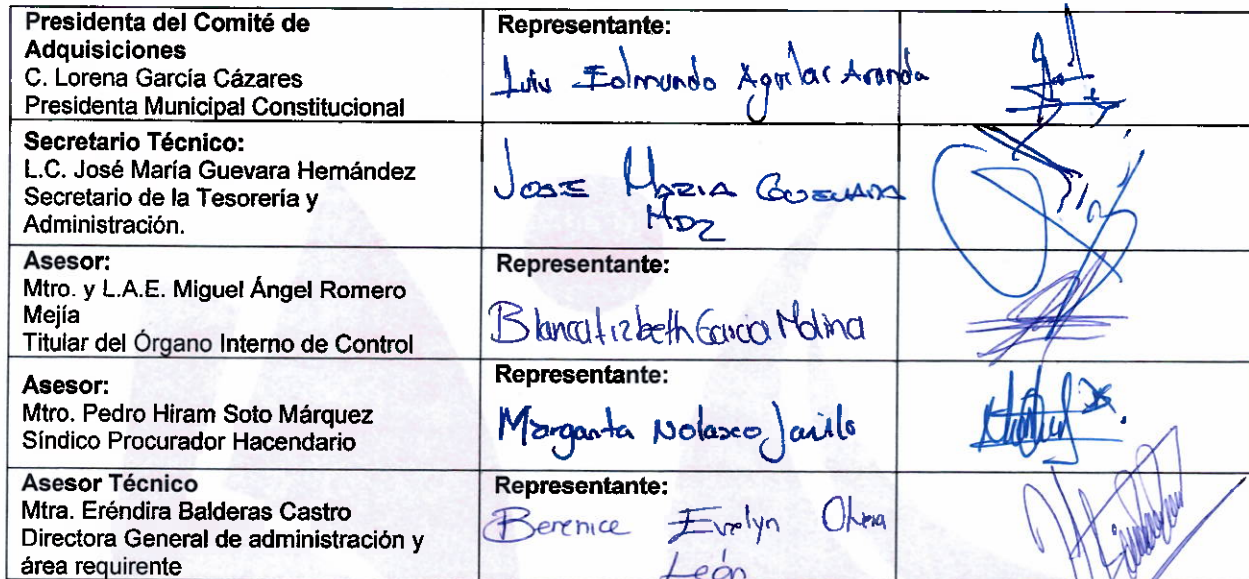 Presidenta del Comité de
Adquisiciones
C. Lorena García Cázares
Presidenta Municipal Constitucional
Representante:
Luis Edmundo Aguilar Aranda
Secretario Técnico:
L.C. José María Guevara Hernández
Secretario de la Tesorería y
Administración.
JOSE MARIA GUEVARA
HDZ
Asesor:
Mtro. y L.A.E. Miguel Ángel Romero
Mejía
Titular del Órgano Interno de Control
Representante:
Blanca Lizbeth Garcia Molina
Asesor:
Mtro. Pedro Hiram Soto Márquez
Síndico Procurador Hacendario
Representante:
Margarita Nolasco Jarillo
Asesor Técnico
Mtra. Eréndira Balderas Castro
Directora General de administración y
área requirente
Representante:
Berenice Evelyn Olvera
León